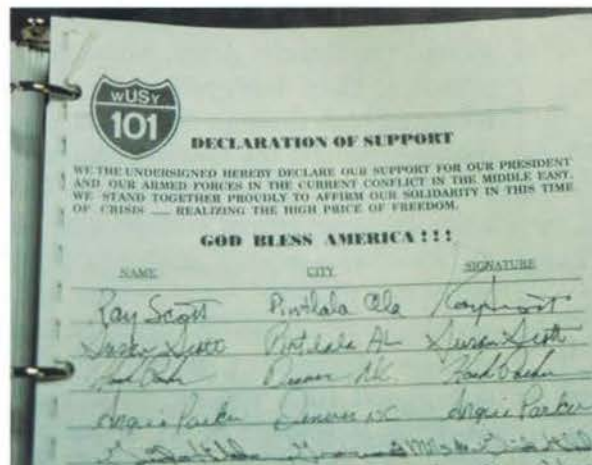 WUSY
101
DECLARATION OF SUPPORT
WE THE UNDERSIGNED HEREBY DECLARE OUR SUPPORT FOR OUR PRESIDENT
AND OUR ARMED FORCES IN THE CURRENT CONFLICT IN THE MIDDLE EAST.
WE STAND TOGETHER PROUDLY TO AFFIRM OUR SOLIDARITY IN THIS TIME
OF CRISIS __ REALIZING THE HIGH PRICE OF FREEDOM.
GOD BLESS AMERICA!!!
NAME CITY SIGNATURE
Ray Scott Pintlala Ala Ray Scott
Susan Scott Pintlala AL Susan Scott
Parker Denver NC Parker
Angie Parker Denver NC Angie Parker